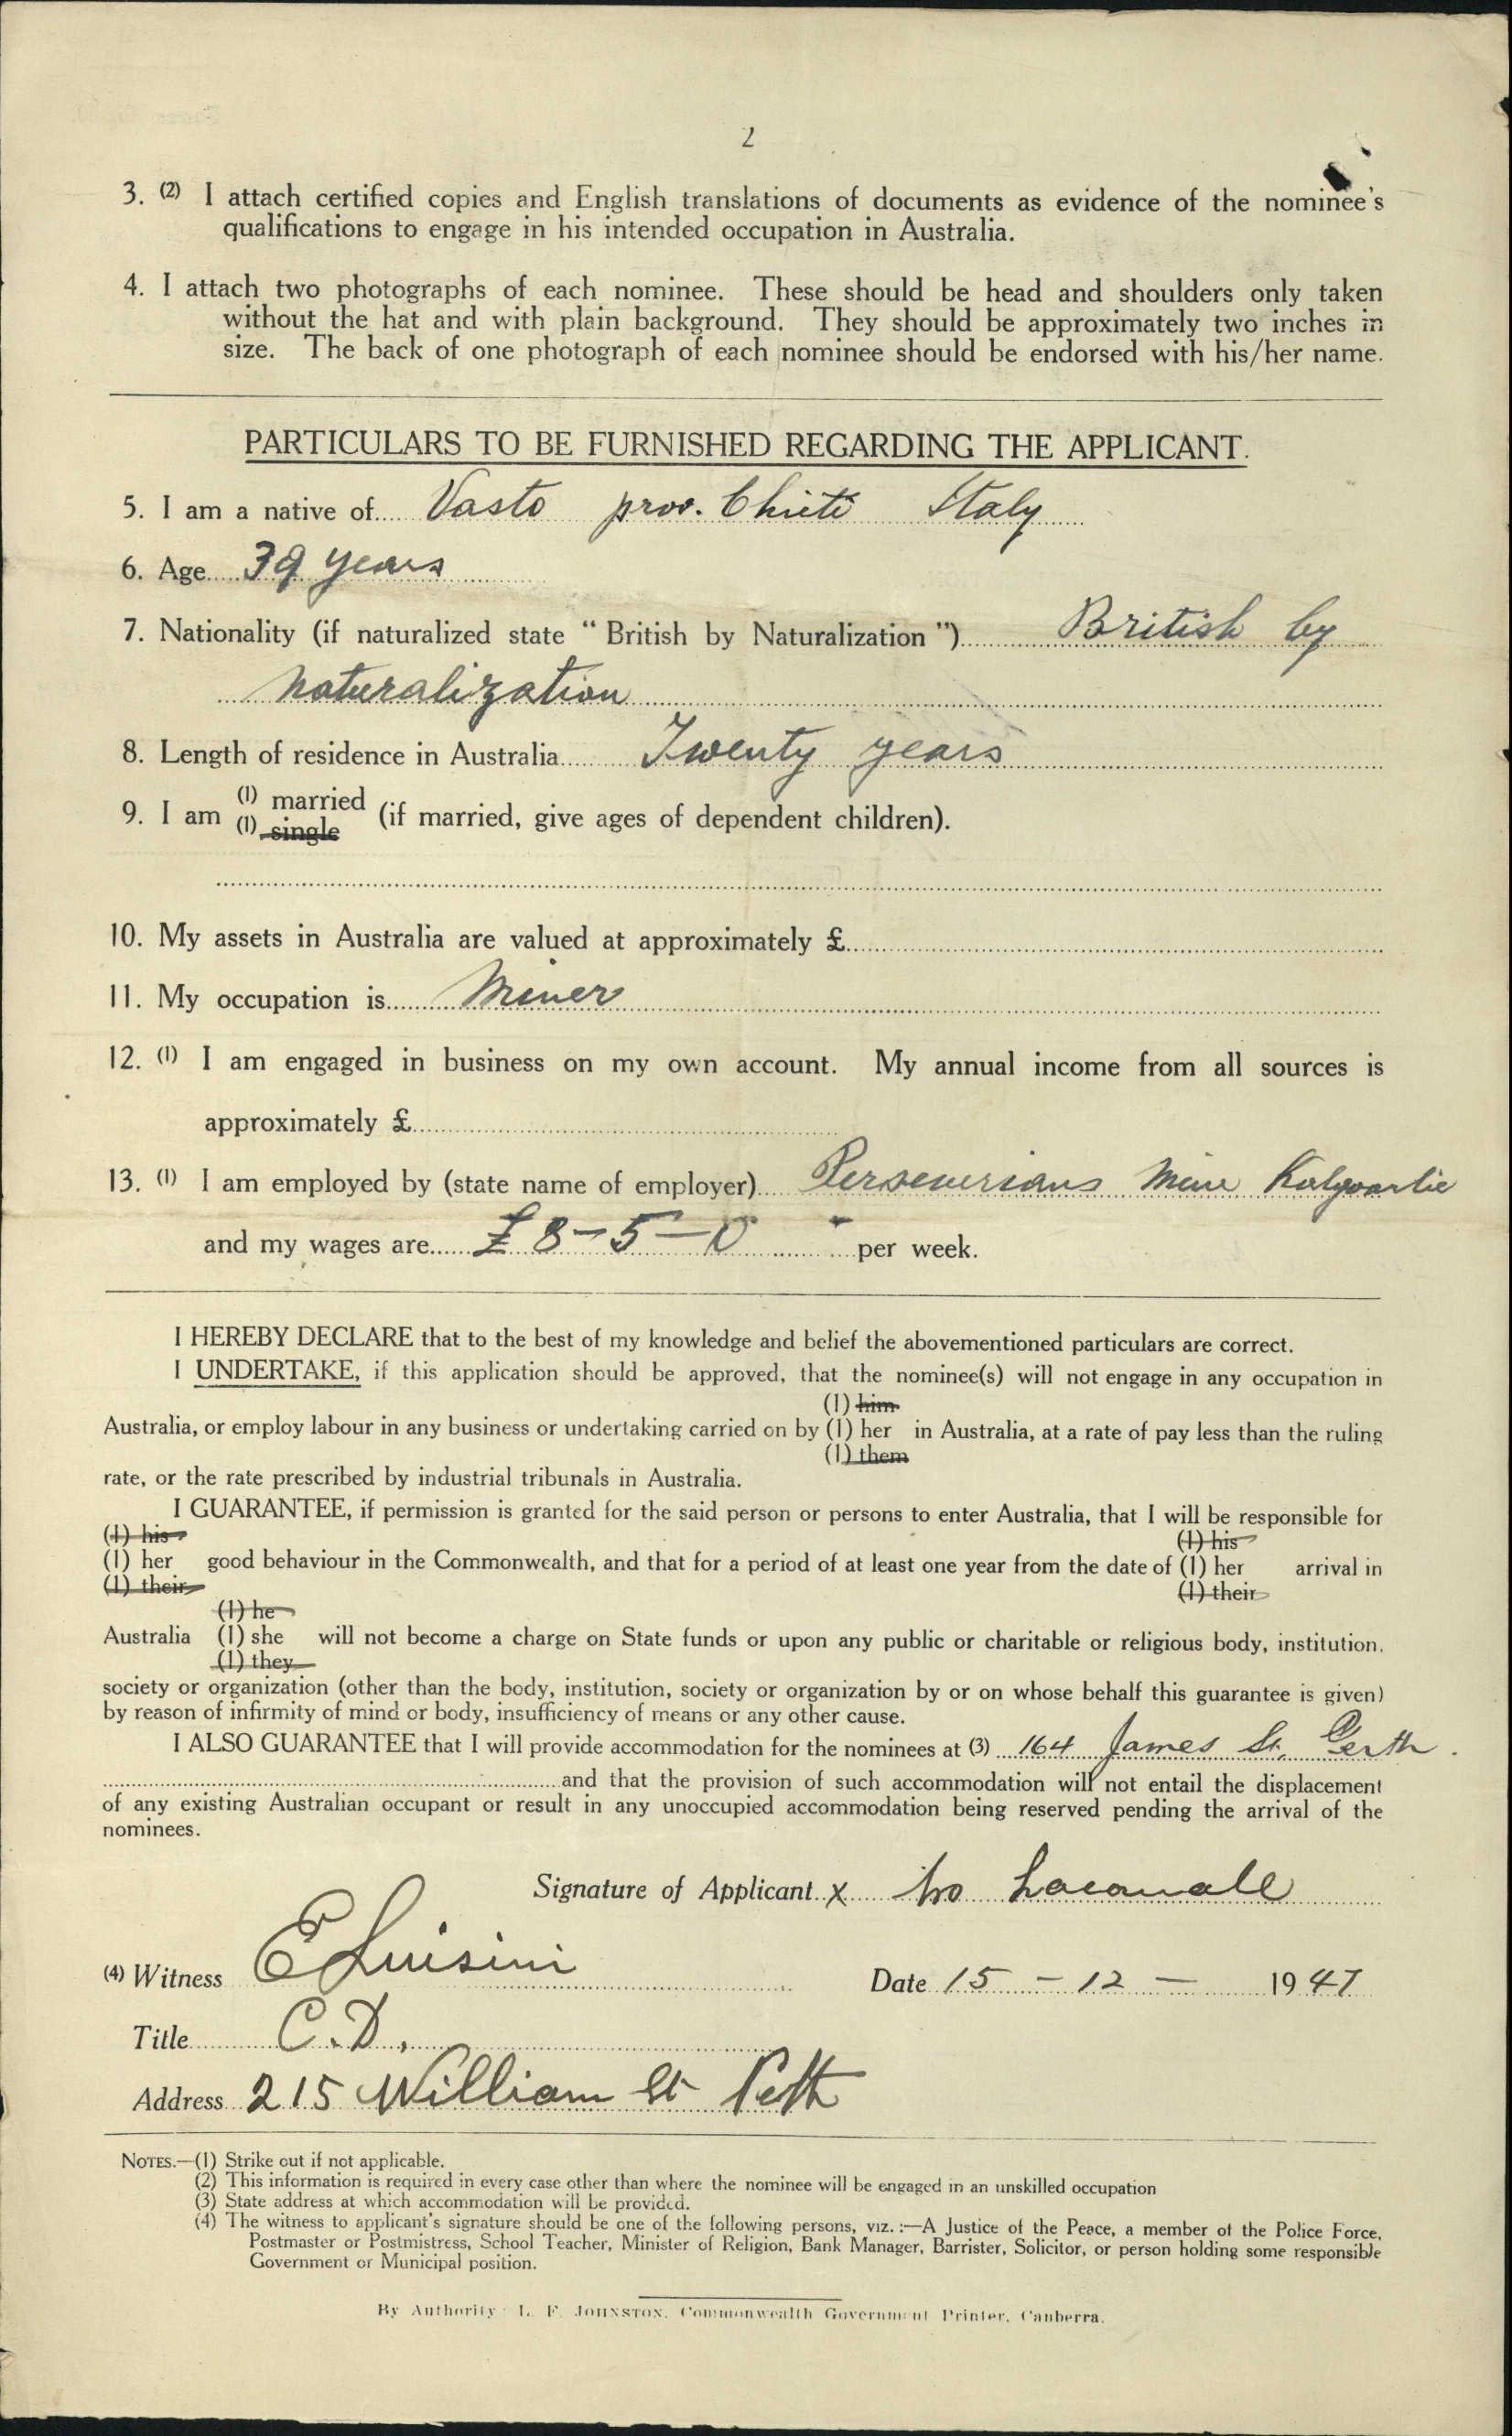 2
3. (2) I attach certified copies and English translations of documents as evidence of the nominee's
qualifications to engage in his intended occupation in Australia.
4. I attach two photographs of each nominee. These should be head and shoulders only taken
without the hat and with plain background. They should be approximately two inches in
size. The back of one photograph of each nominee should be endorsed with his/her name.
PARTICULARS TO BE FURNISHED REGARDING THE APPLICANT.
5. I am a native of Vasto prov. Chieti Italy
6. Age 39 years
7. Nationality (if naturalized state "British by Naturalization") British by
naturalization
8. Length of residence in Australia Twenty years
(1) married
9. I am (if married, give ages of dependent children).
(1) single
10. My assets in Australia are valued at approximately £
11. My occupation is Miner
12. (1) I am engaged in business on my own account. My annual income from all sources is
approximately £
13. (1) I am employed by (state name of employer) Perseverians Mine Kalgoorlie
and my wages are £ 8-5-0 per week.
I HEREBY DECLARE that to the best of my knowledge and belief the abovementioned particulars are correct.
I UNDERTAKE, if this application should be approved, that the nominee(s) will not engage in any occupation in
(1) him
Australia, or employ labour in any business or undertaking carried on by (1) her in Australia, at a rate of pay less than the ruling
(1) them
rate, or the rate prescribed by industrial tribunals in Australia.
I GUARANTEE, if permission is granted for the said person or persons to enter Australia, that I will be responsible for
(1) his (1) his
(1) her good behaviour in the Commonwealth, and that for a period of at least one year from the date of (1) her arrival in
(1) their (1) their
(1) he
Australia (1) she will not become a charge on State funds or upon any public or charitable or religious body, institution,
(1) they
society or organization (other than the body, institution, society or organization by or on whose behalf this guarantee is given)
by reason of infirmity of mind or body, insufficiency of means or any other cause.
I ALSO GUARANTEE that I will provide accommodation for the nominees at (3) 164 James St. Perth.
and that the provision of such accommodation will not entail the displacement
of any existing Australian occupant or result in any unoccupied accommodation being reserved pending the arrival of the
nominees.
Signature of Applicant x
(4) Witness E Luisini Date 15 - 12 - 1947
Title C.D.
Address 215 William St Perth
NOTES.—(1) Strike out if not applicable.
(2) This information is required in every case other than where the nominee will be engaged in an unskilled occupation
(3) State address at which accommodation will be provided.
(4) The witness to applicant's signature should be one of the following persons, viz.:—A Justice of the Peace, a member of the Police Force,
Postmaster or Postmistress, School Teacher, Minister of Religion, Bank Manager, Barrister, Solicitor, or person holding some responsible
Government or Municipal position.
By Authority: L. F. JOHNSTON, Commonwealth Government Printer, Canberra.